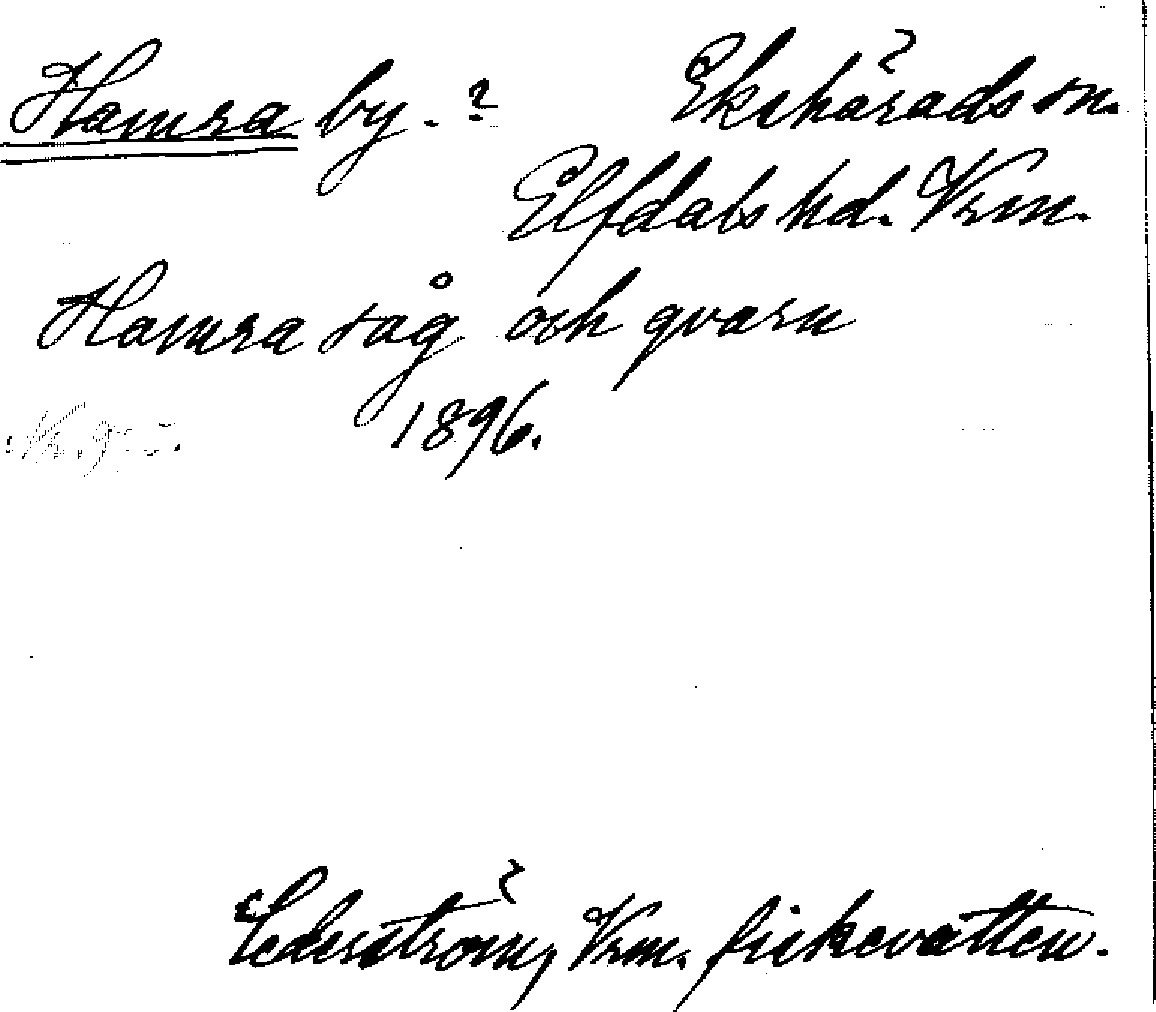 Hamra by. ? Ekshärads sn.
Elfdals hd. Vrm.
Hamra såg och qvarn
1896.
Cederström, Vrm. fiskevatten.